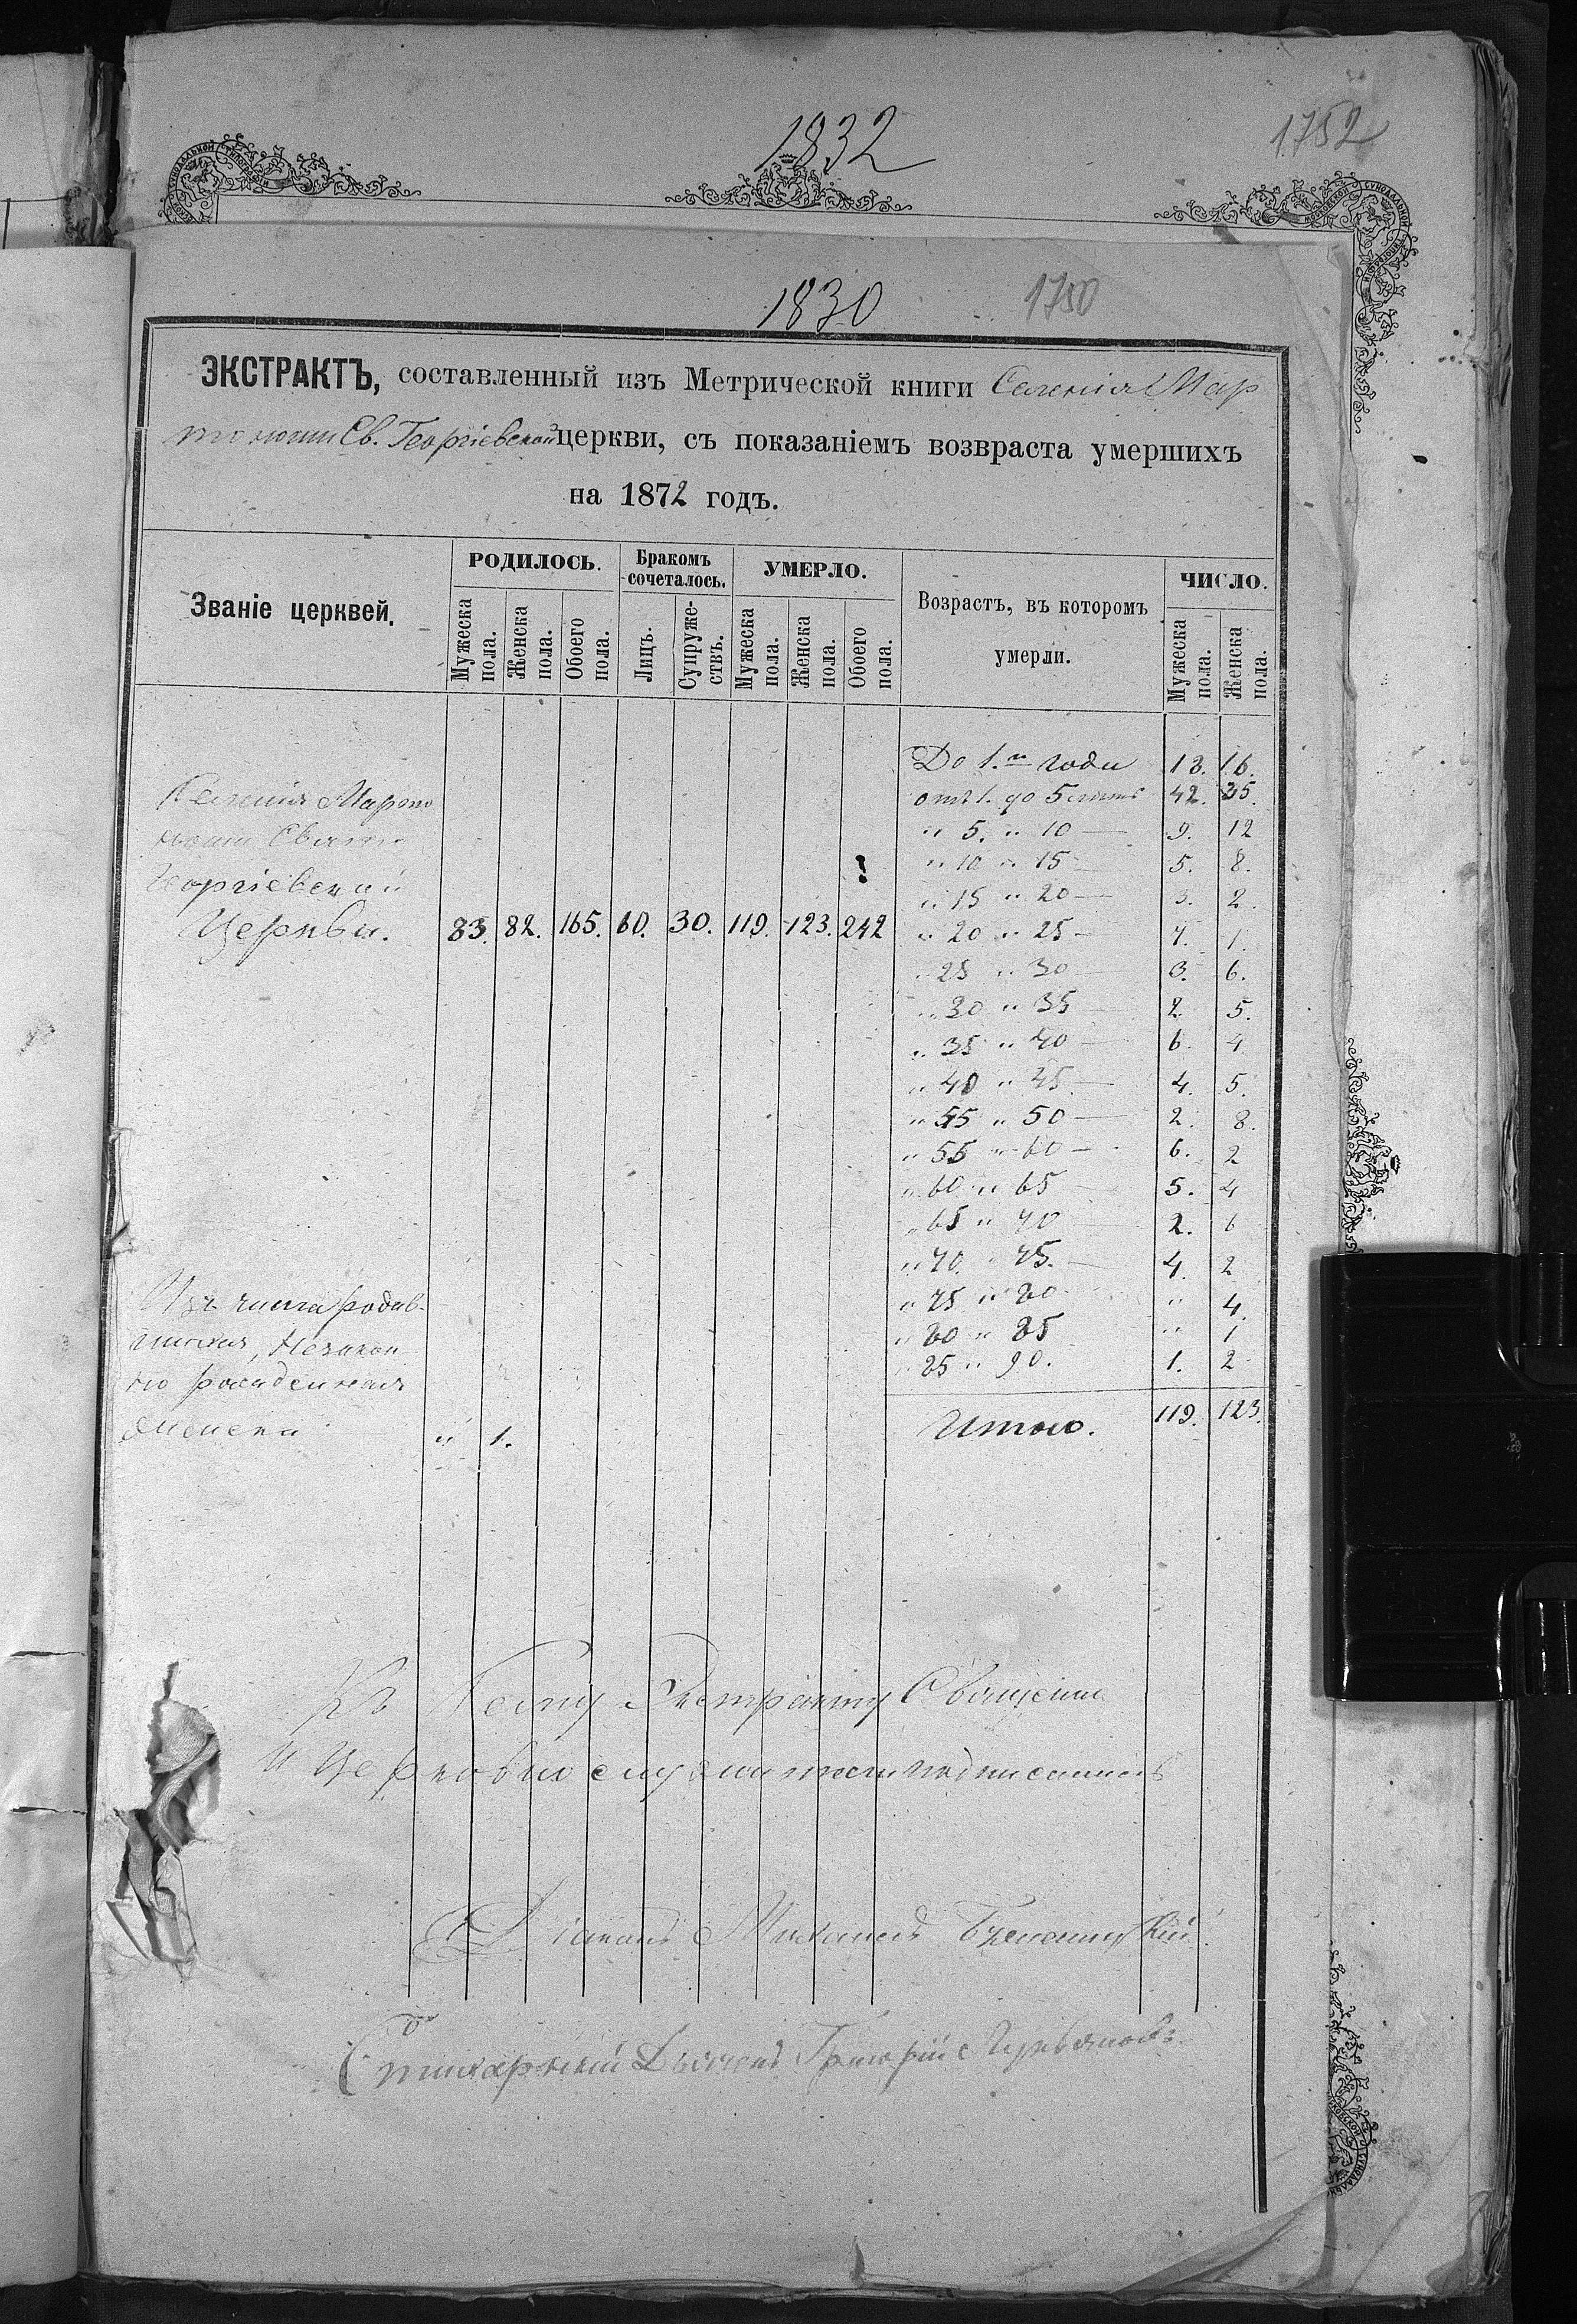 1832
1752
1830
1750
ЭКСТРАКТЪ, составленный изъ Метрической книги Селенія Мар
тоноши Св. Георгіевской церкви, съ показаніемъ возвраста умершихъ
на 1872 годъ.
Званіе церквей.
РОДИЛОСЬ.
Мужеска пола.
Женска пола.
Обоего пола.
Бракомъ сочеталось.
Лицъ.
Супруже-ствъ.
УМЕРЛО.
Мужеска пола.
Женска пола.
Обоего пола.
Возрастъ, въ которомъ умерли.
ЧИСЛО.
Мужеска пола.
Женска пола.
До 1.го года 18. 16.
Селенія Марто
отъ 1. до 5 лѣтъ 42. 35.
ноши Свято
" 5. " 10 — 9. 12
" 10 " 15 — 5. 8.
Георгіевской
" 15 " 20 — 3. 2.
Церкви. 83. 82. 165. 60. 30. 119. 123. 242
" 20 " 25 — 7. 1.
" 25 " 30 — 3. 6.
" 30 " 35 — 2. 5.
" 35 " 40 — 6. 4
" 40 " 45 — 4. 5.
" 45 " 50 — 2. 8.
" 55 " 60 — 6. 2
" 60 " 65 5. 4
" 65 " 70 2. 6
" 70. " 75. — 4. 2
" 75 " 80 " 4.
" 80 " 85 " 1
" 85 " 90. 1. 2
Изъ числа родив-
шихся, Незакон
но рожденная
женска " 1.
Итого. 119. 123.
Къ Сему Экстракту Священно
и Церковно служители подписались
Діаконъ Михаилъ
Стихарный Дьячекъ Григорій